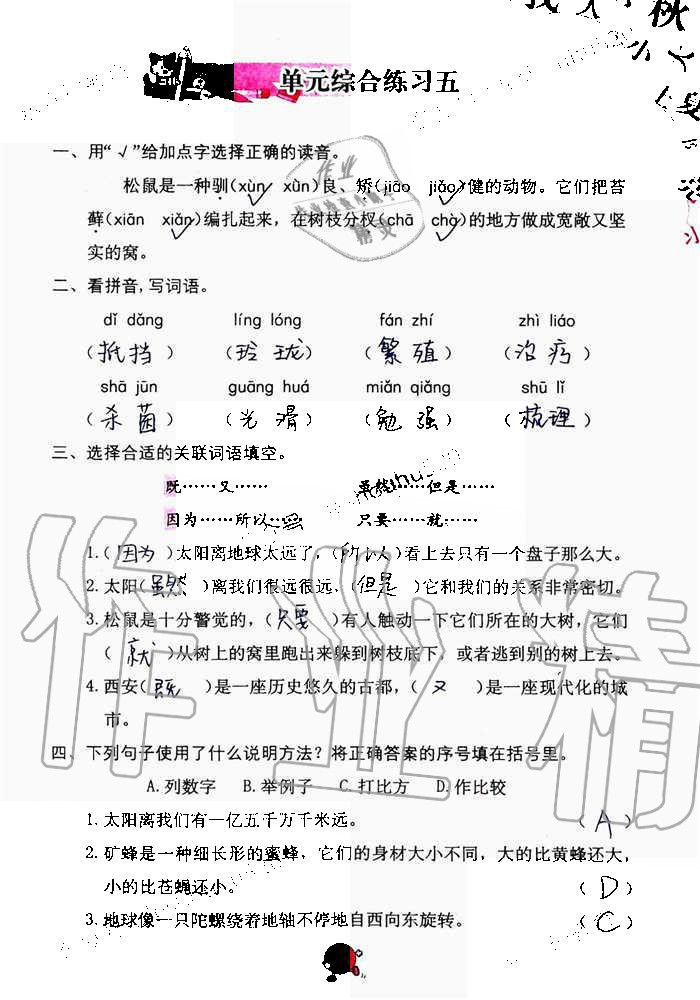 单元综合练习五
一、用“√”给加点字选择正确的读音。
松鼠是一种驯(xùn xūn)良、矫(jiāo jiǎo)健的动物。它们把苔
藓(xiān xiǎn)编扎起来，在树枝分杈(chā chà)的地方做成宽敞又坚
实的窝。
二、看拼音，写词语。
dǐ dǎng líng lóng fán zhí zhì liáo
（抵挡）（玲珑）（繁殖）（治疗）
shā jūn guāng huá miǎn qiǎng shū lǐ
（杀菌）（光滑）（勉强）（梳理）
三、选择合适的关联词语填空。
既……又…… 虽然……但是……
因为……所以…… 只要……就……
1.（因为）太阳离地球太远了，（所以）看上去只有一个盘子那么大。
2. 太阳（虽然）离我们很远很远，（但是）它和我们的关系非常密切。
3. 松鼠是十分警觉的，（只要）有人触动一下它们所在的大树，它们
（就）从树上的窝里跑出来躲到树枝底下，或者逃到别的树上去。
4. 西安（既）是一座历史悠久的古都，（又）是一座现代化的城
市。
四、下列句子使用了什么说明方法？将正确答案的序号填在括号里。
A.列数字 B.举例子 C.打比方 D.作比较
1. 太阳离我们有一亿五千万千米远。（A）
2. 矿蜂是一种细长形的蜜蜂，它们的身材大小不同，大的比黄蜂还大，
小的比苍蝇还小。（D）
3. 地球像一只陀螺绕着地轴不停地自西向东旋转。（C）
作业精